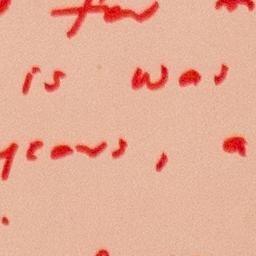 for
is was
years, a